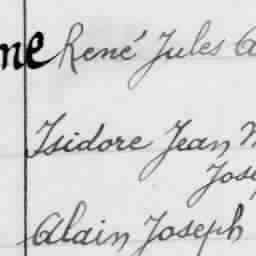 me René Jules
Isidore Jean
Alain Joseph